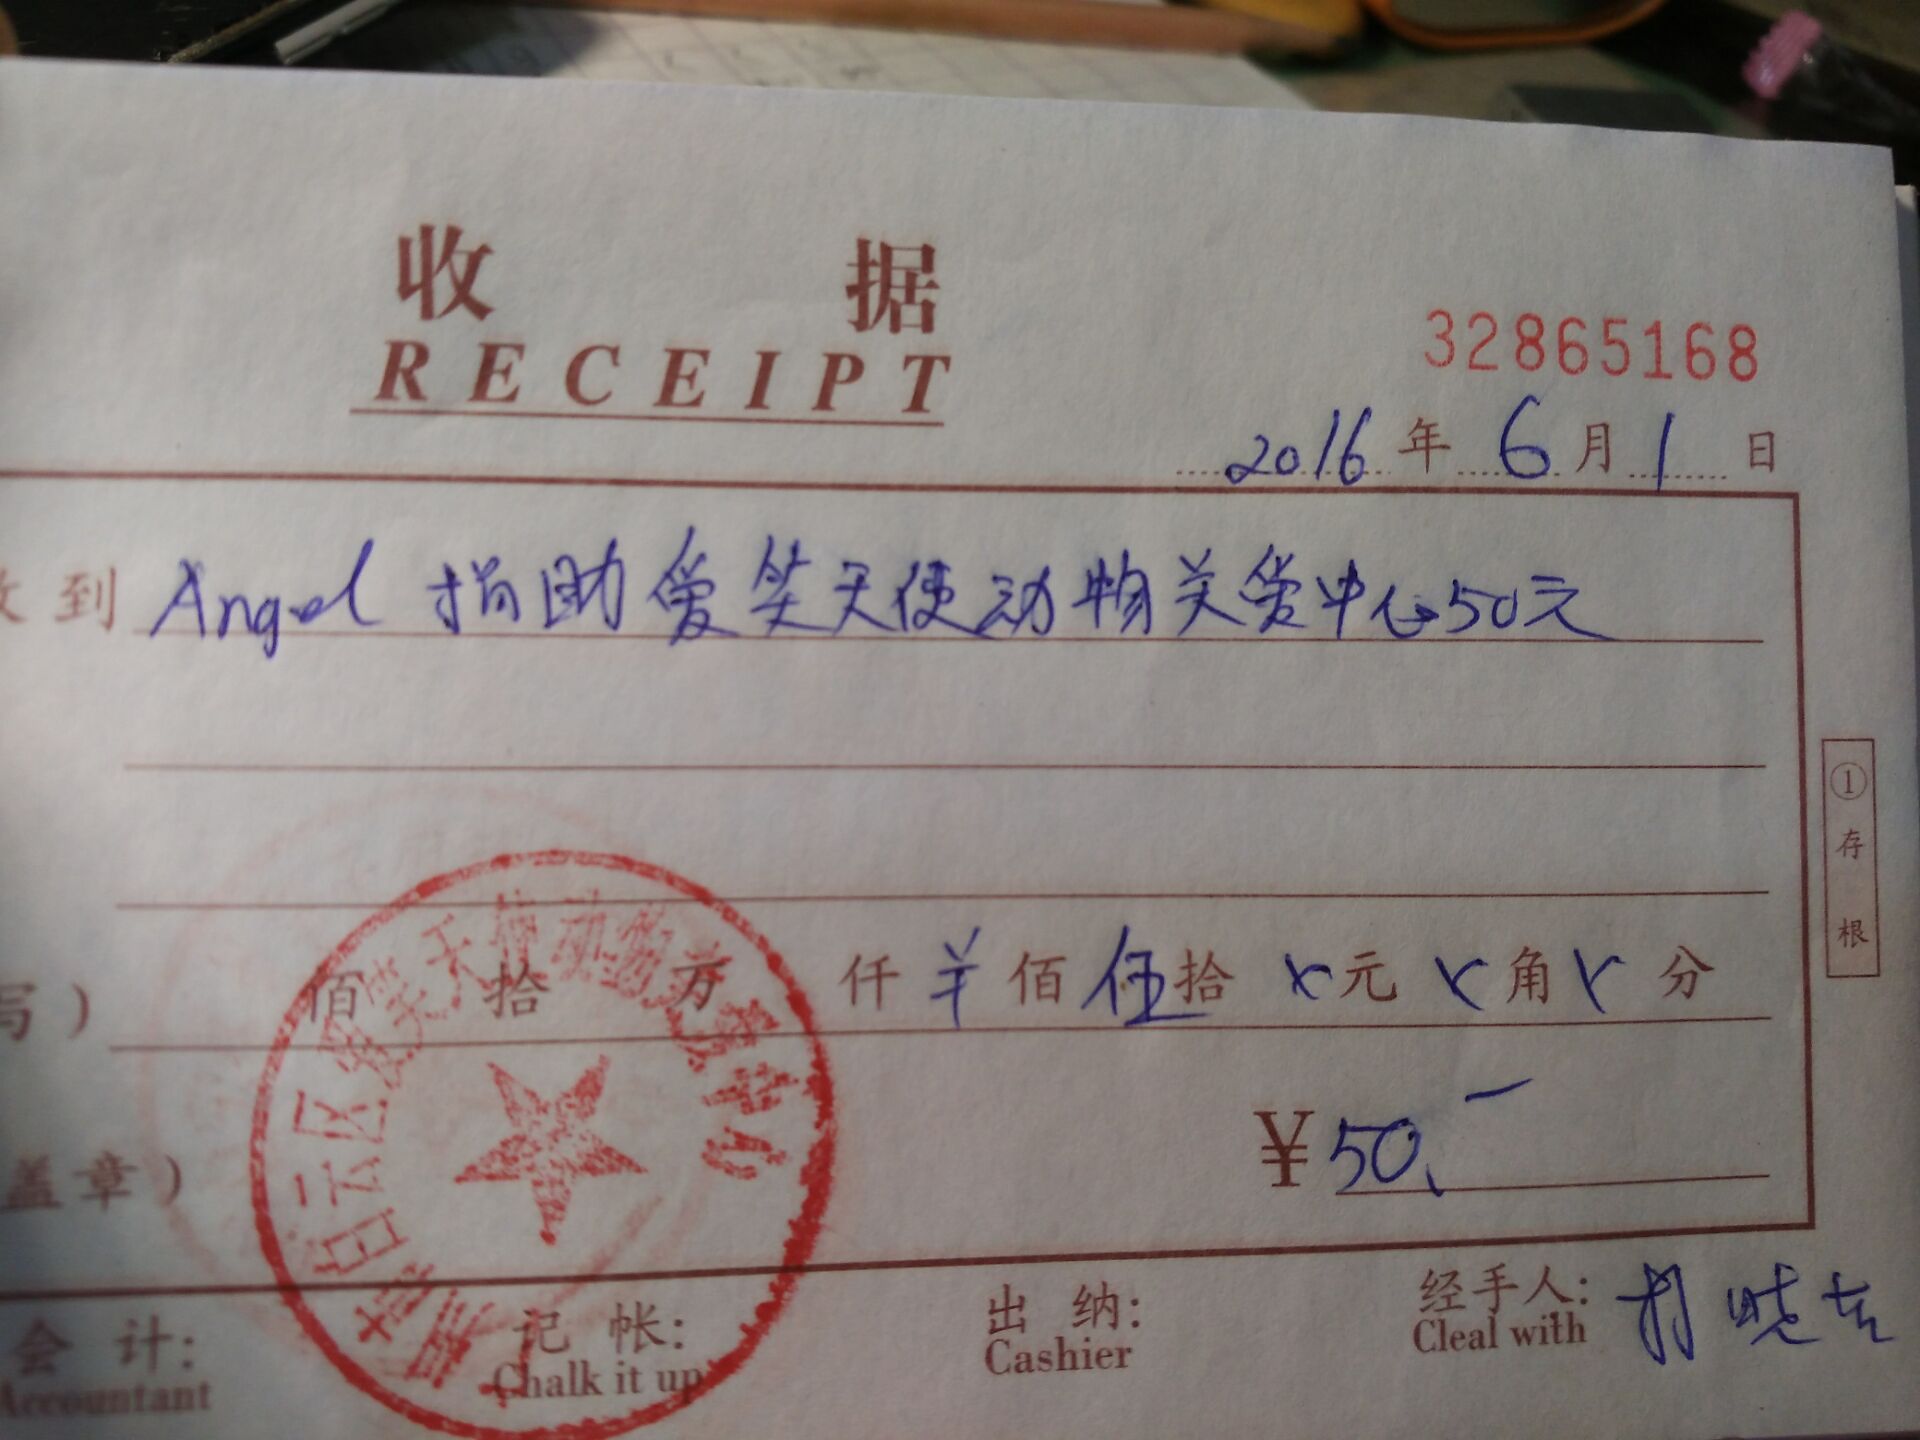 收据
RECEIPT
32865168
2016年6月1日
收到 Angel 捐助爱笑天使动物关爱中心50元
①存根
写） 佰 拾 万 仟 ¥ 佰 伍 拾 x 元 x 角 x 分
¥50.—
盖章）
白云区爱笑天使动物关爱中心
会 计: 记 帐: 出 纳: 经手人:
Accountant Chalk it up Cashier Cleal with